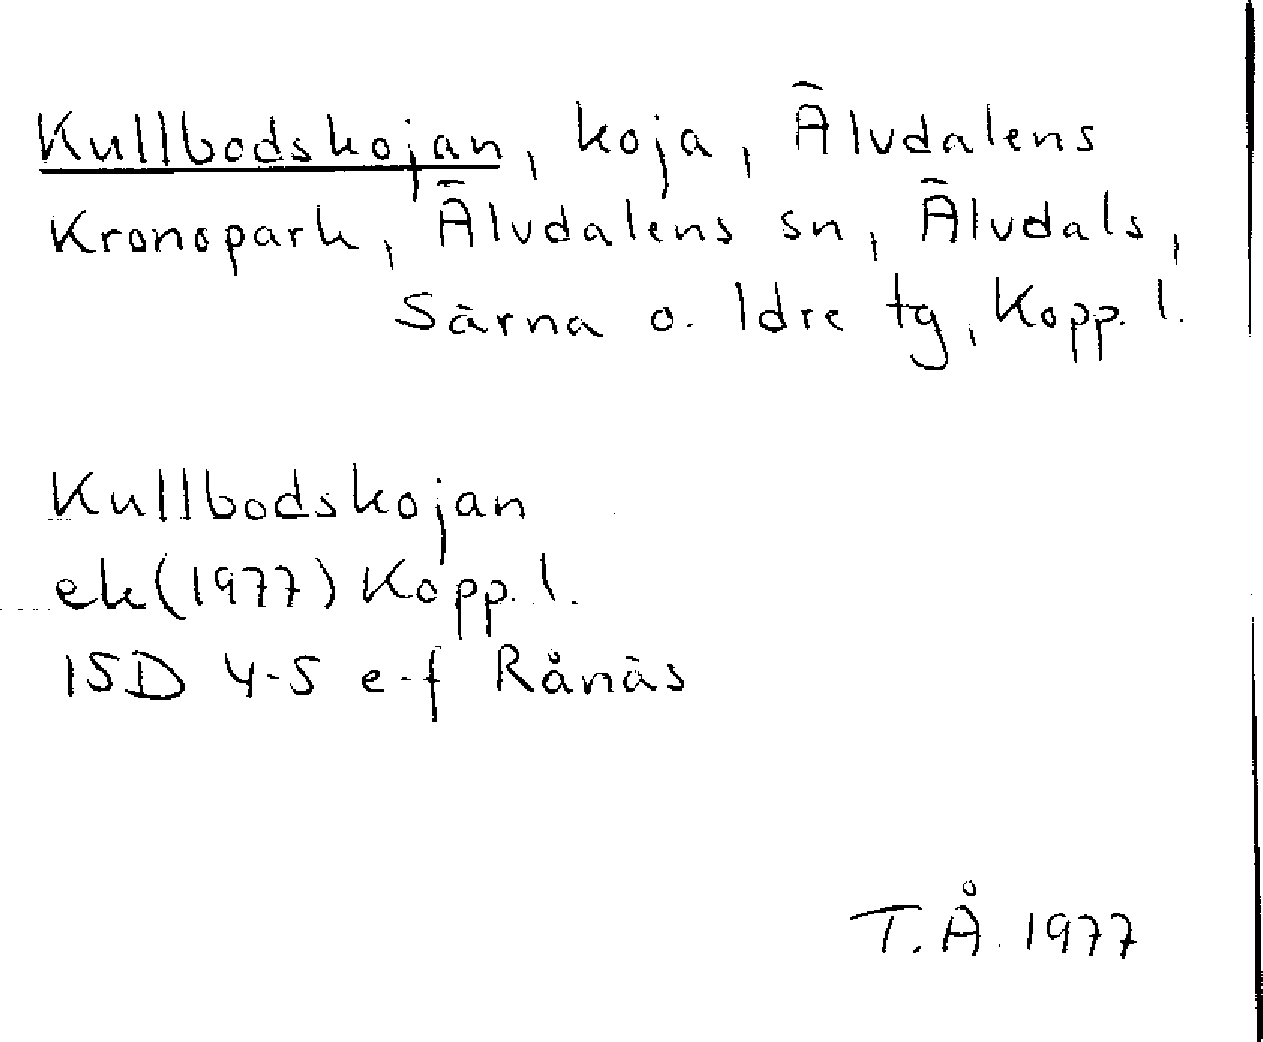 Kullbodskojan, koja, Älvdalens
Kronopark, Älvdalens sn, Älvdals,
Särna o. Idre tg, Kopp. l.
Kullbodskojan
ek(1977) Kopp. l.
15D 4-5 e-f Rånäs
T.Å. 1977